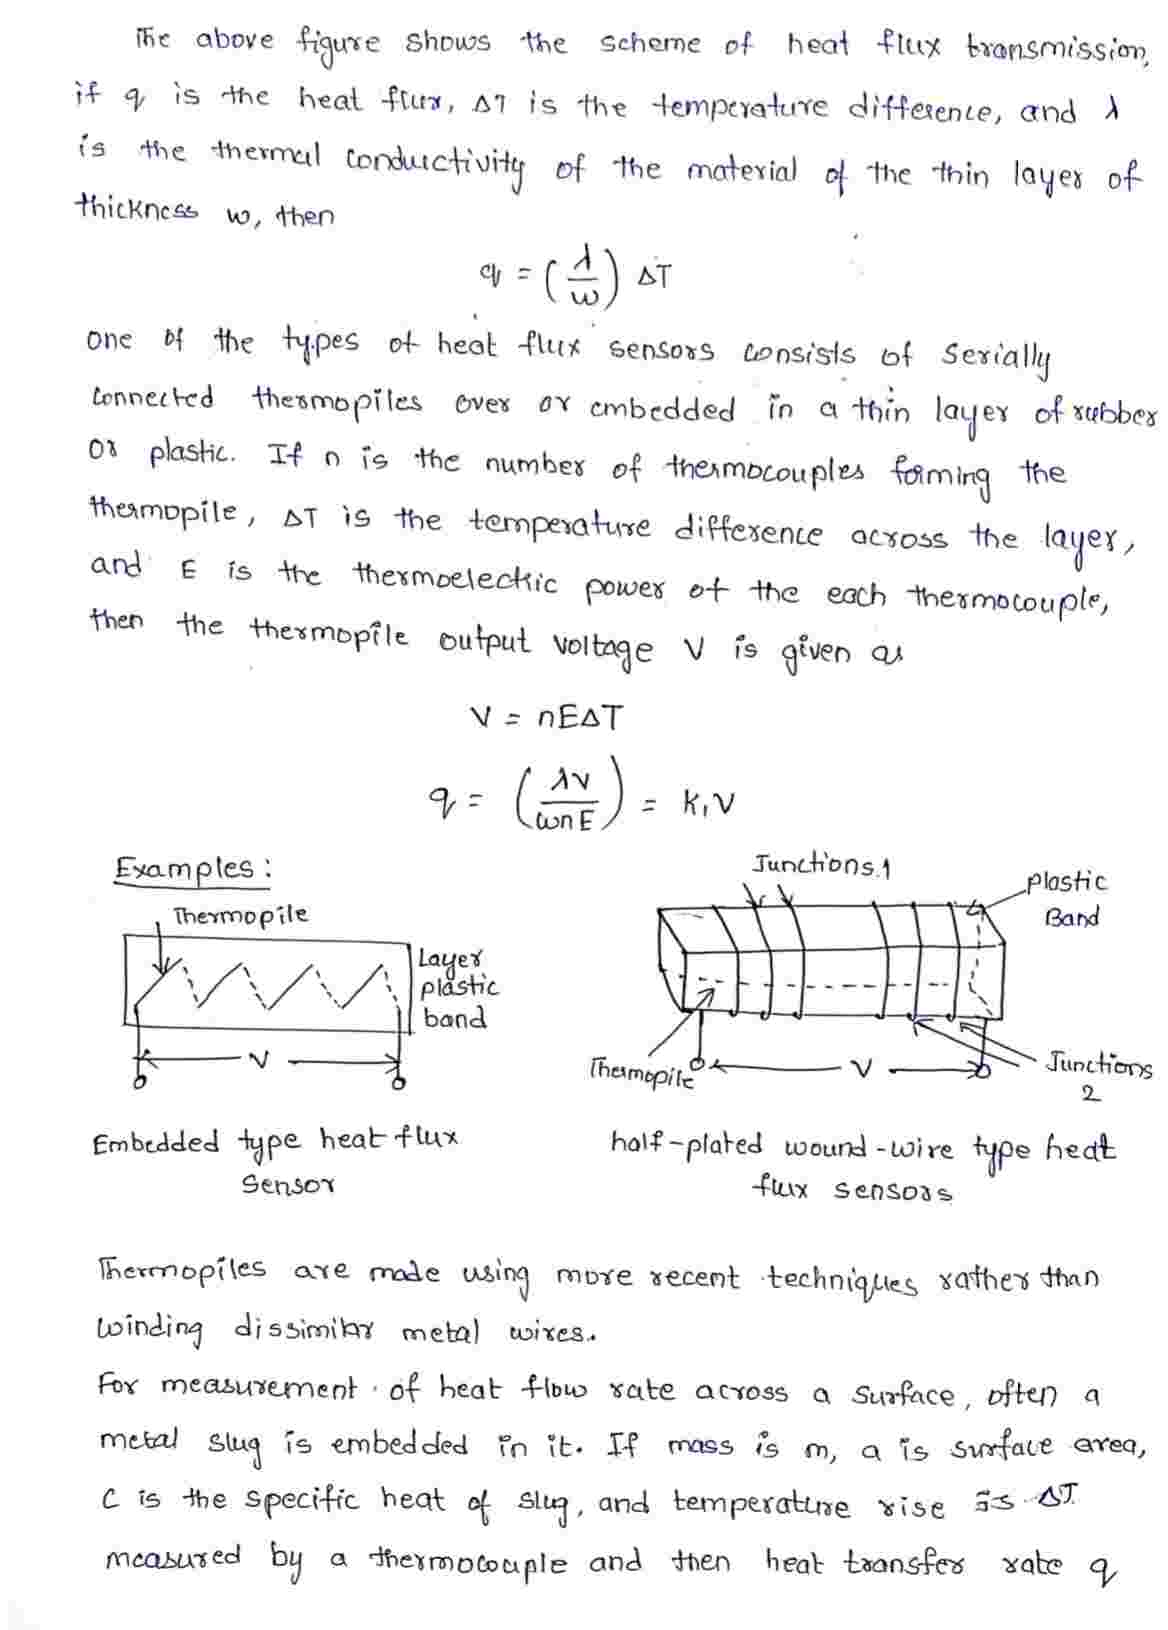 The above figure shows the scheme of heat flux transmission,
if q is the heat flux, ΔT is the temperature difference, and λ
is the thermal conductivity of the material of the thin layer of
thickness w, then
q = (λ/w) ΔT
one of the types of heat flux sensors consists of serially
connected thermopiles over or embedded in a thin layer of rubber
or plastic. If n is the number of thermocouples forming the
thermopile, ΔT is the temperature difference across the layer,
and E is the thermoelectric power of the each thermocouple,
then the thermopile output voltage V is given as
V = nEΔT
q = (λV/wnE) = K₁V
Examples:
Thermopile
Layer
plastic
band
V
Embedded type heat flux
sensor
Junctions.1
plastic
Band
Thermopile
V
Junctions
2
half-plated wound-wire type heat
flux sensors
Thermopiles are made using more recent techniques rather than
winding dissimilar metal wires..
For measurement of heat flow rate across a surface, often a
metal slug is embedded in it. If mass is m, a is surface area,
C is the specific heat of slug, and temperature rise is ΔT
measured by a thermocouple and then heat transfer rate q